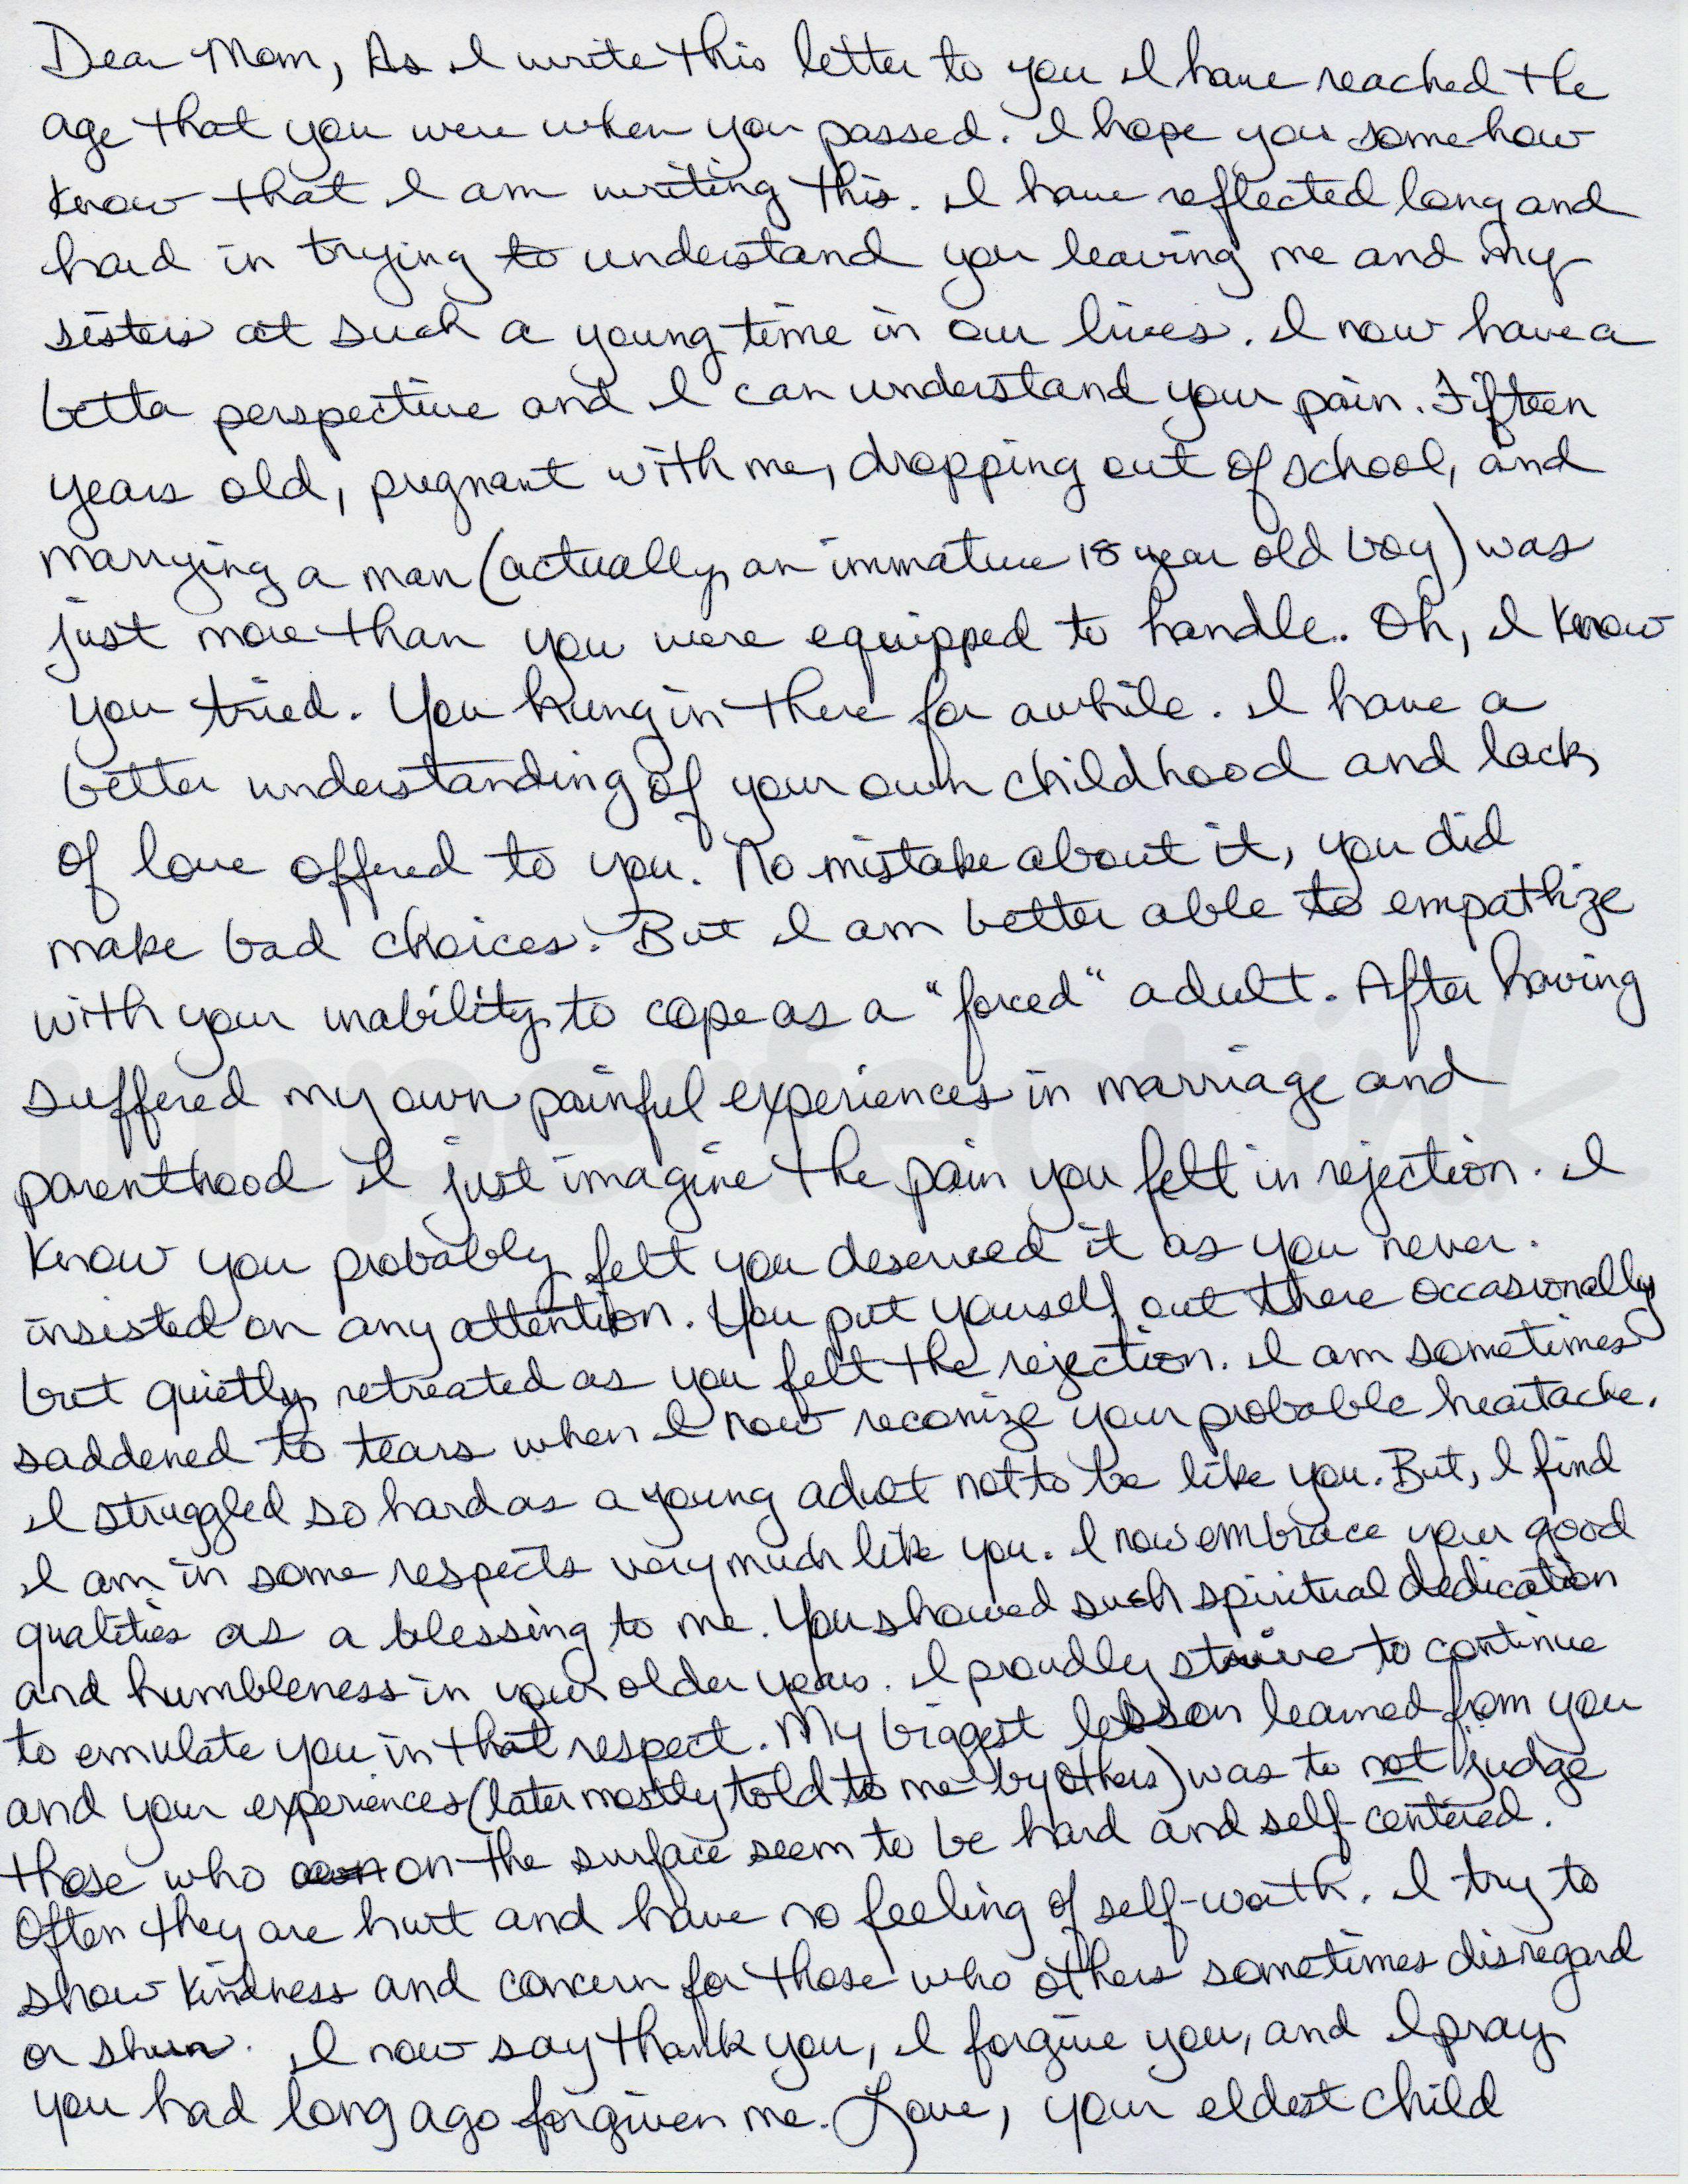 Dear Mom, As I write this letter to you I have reached the
age that you were when you passed. I hope you somehow
know that I am writing this. I have reflected long and
hard in trying to understand you leaving me and my
sisters at such a young time in our lives. I now have a
better perspective and I can understand your pain. Fifteen
years old, pregnant with me, dropping out of school, and
marrying a man (actually, an immature 18 year old boy) was
just more than you were equipped to handle. Oh, I know
you tried. You hung in there for awhile. I have a
better understanding of your own childhood and lack
of love offered to you. No mistake about it, you did
make bad choices. But I am better able to empathize
with your inability to cope as a "forced" adult. After having
suffered my own painful experiences in marriage and
parenthood I just imagine the pain you felt in rejection. I
know you probably felt you deserved it as you never.
insisted on any attention. You put yourself out there occasionally
but quietly retreated as you felt the rejection. I am sometimes
saddened to tears when I now reconize your probable heartache.
I struggled so hard as a young adult not to be like you. But, I find
I am in some respects very much like you. I now embrace your good
qualities as a blessing to me. You showed such spiritual dedication
and humbleness in your older years. I proudly strive to continue
to emulate you in that respect. My biggest lesson learned from you
and your experiences (later mostly told to me by others) was to not judge
those who on the surface seem to be hard and self-centered.
Often they are hurt and have no feeling of self-worth. I try to
show kindness and concern for those who others sometimes disregard
or shun. I now say thank you, I forgive you, and I pray
you had long ago forgiven me. Love, your eldest child
imperfect ink